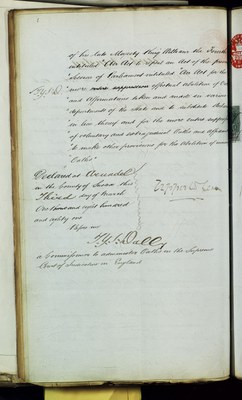 of his late Majesty King William the Fourth
intituled "An Act to repeal an Act of the present
Session of Parliament intituled An Act for the
more effectual abolition of Oaths
and Affirmations taken and made in various
departments of the State and to substitute Declarations
in lieu thereof and for the more entire suppression
of voluntary and extrajudicial Oaths and Affidavits
to make other provisions for the abolition of unnecessary
Oaths"
Declared at Arundel
in the County of Sussex this
Third day of March
One thousand eight hundred
and eighty one
Before me
a Commissioner to administer Oaths in the Supreme
Court of Judicature in England